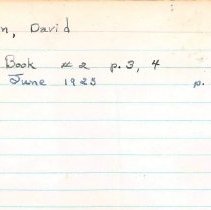 n, David
Book #2 p. 3, 4
June 1925 p.